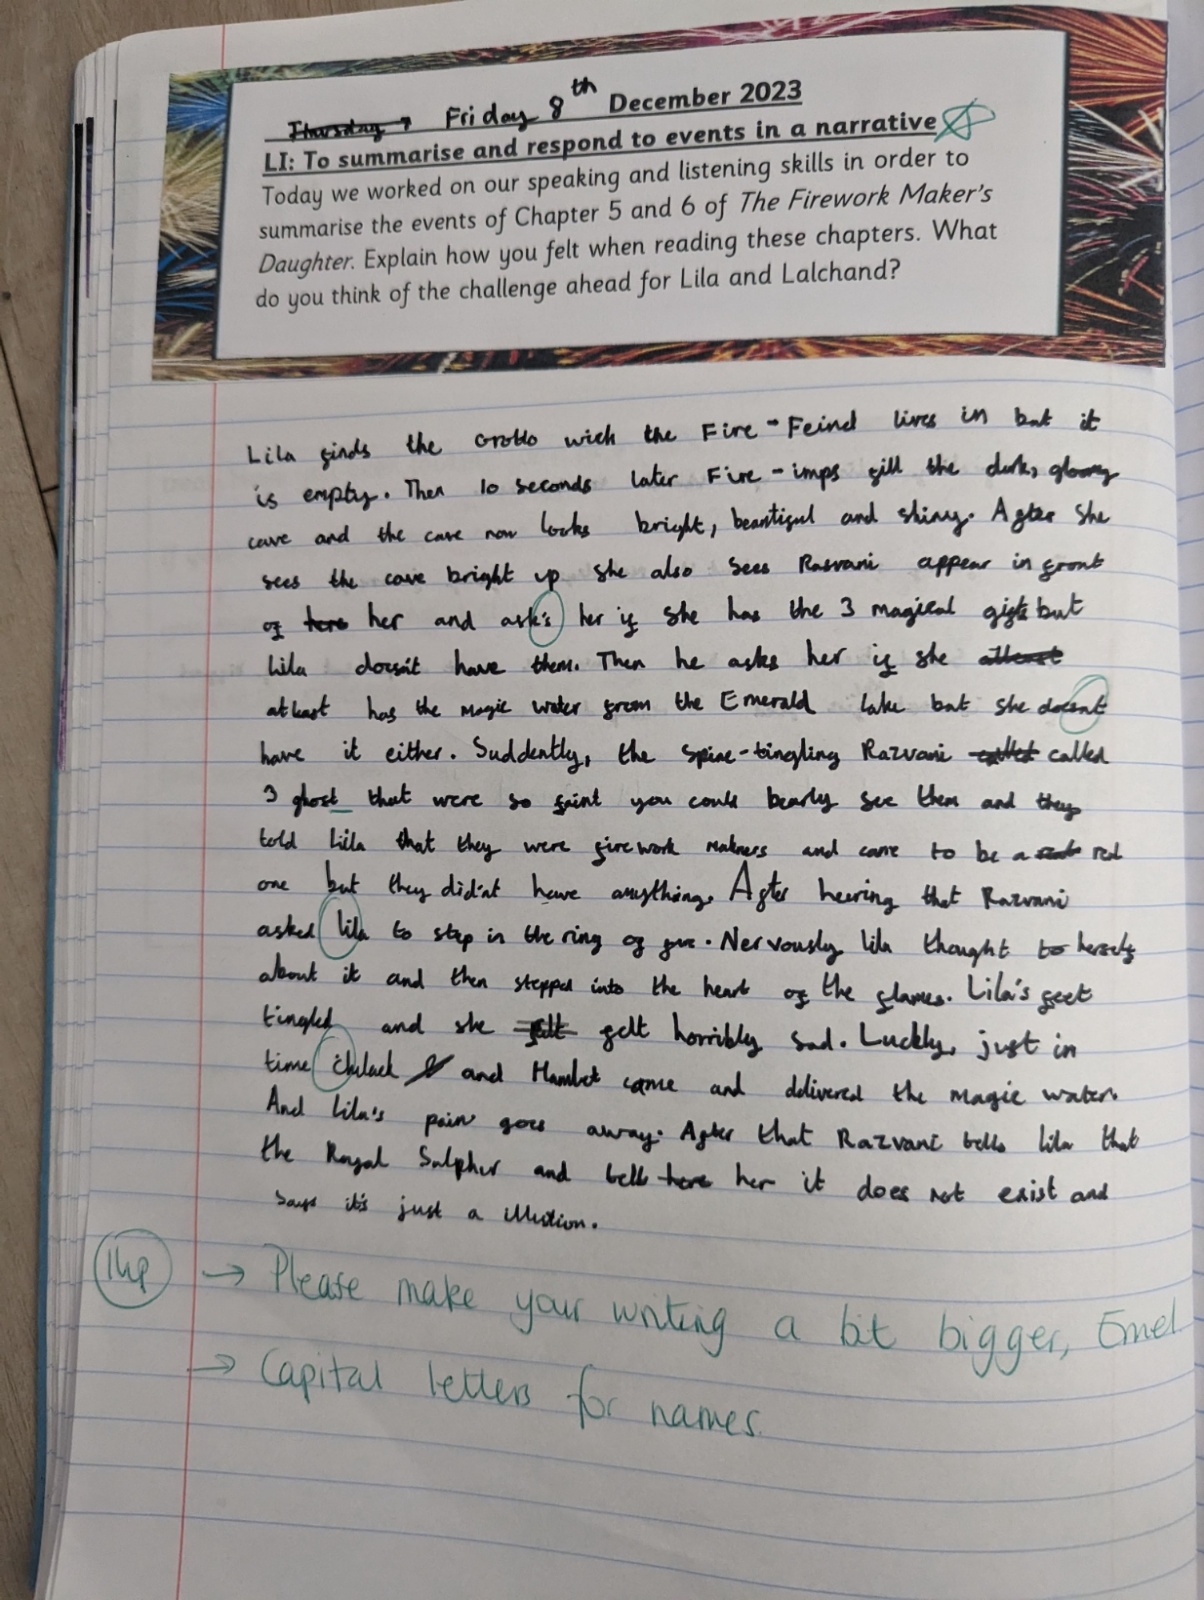 Thursday 7 Friday 8th December 2023
LI: To summarise and respond to events in a narrative
Today we worked on our speaking and listening skills in order to
summarise the events of Chapter 5 and 6 of The Firework Maker's
Daughter. Explain how you felt when reading these chapters. What
do you think of the challenge ahead for Lila and Lalchand?
Lila finds the Grotto wich the Fire-Feind lives in but it
is empty. Then 10 seconds later Fire-imps fill the dark, gloomy
cave and the cave now looks bright, beautiful and shiny. After she
sees the cave bright up she also sees Rasvani appear in front
of here her and ask's her if she has the 3 magical gifts but
Lila doesn't have them. Then he asks her if she
atleast has the magic water from the Emerald lake but she doesent
have it either. Suddenly, the spine-tingling Razvani called called
3 ghost that were so faint you could bearly see them and they
told Lila that they were firework makners and came to be a real
one but they did'nt have anything. After heering that Razvani
asked lila to step in the ring of fire. Nervously lila thought to herself
about it and then stepped into the heart of the flames. Lila's feet
tingled and she felt felt horribly sad. Luckly, just in
time chulack and Hamlet came and delivered the magic water.
And Lila's pain goes away. After that Razvani tells lila that
the Royal Sulpher and tells here her it does not exist and
says it's just a illution.
→ Please make your writing a bit bigger, Emel
→ Capital letters for names.